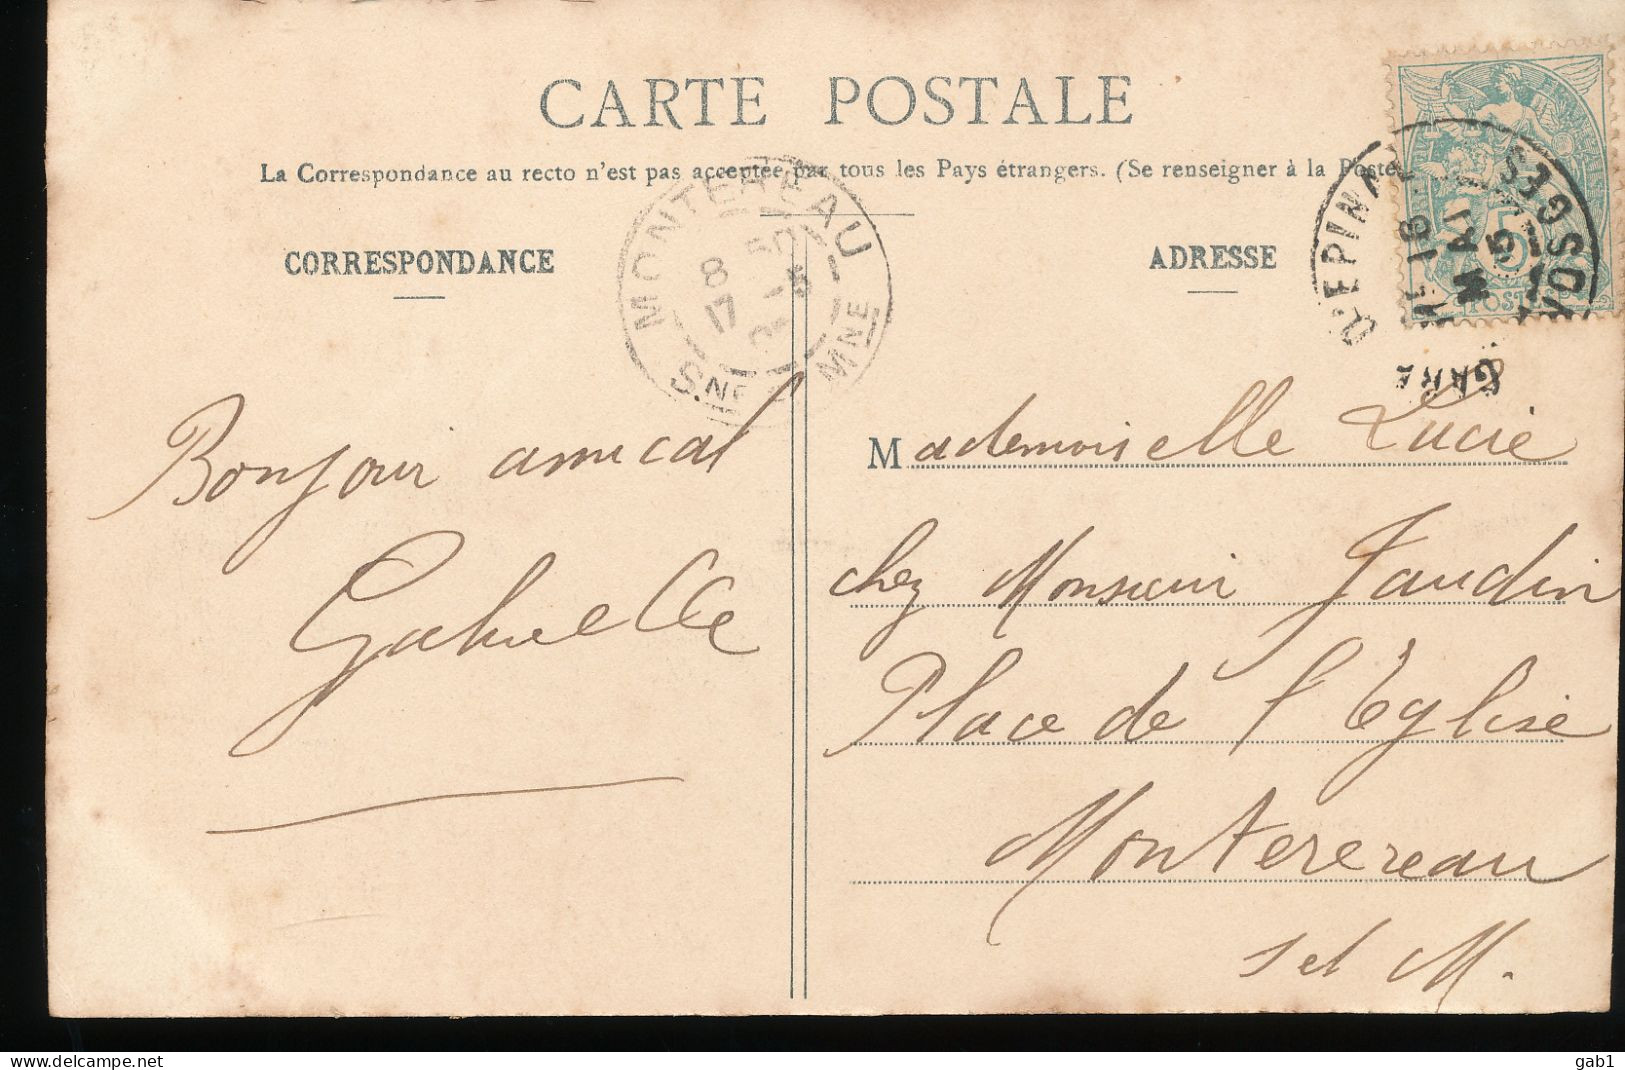 CARTE POSTALE
La Correspondance au recto n'est pas acceptée par tous les Pays étrangers. (Se renseigner à la Poste
CORRESPONDANCE
ADRESSE
MONTEREAU
8 50
17 -5
SNE MNE
EPINAL
VOSGES
MAI
FRANÇAISE
5
POSTES
GARE
Bonjour amical
Gabrielle
Mademoiselle Lucie
chez Monsieur Jaudin
Place de l'église
Montereau
S et M.
delcampe.net
gab1